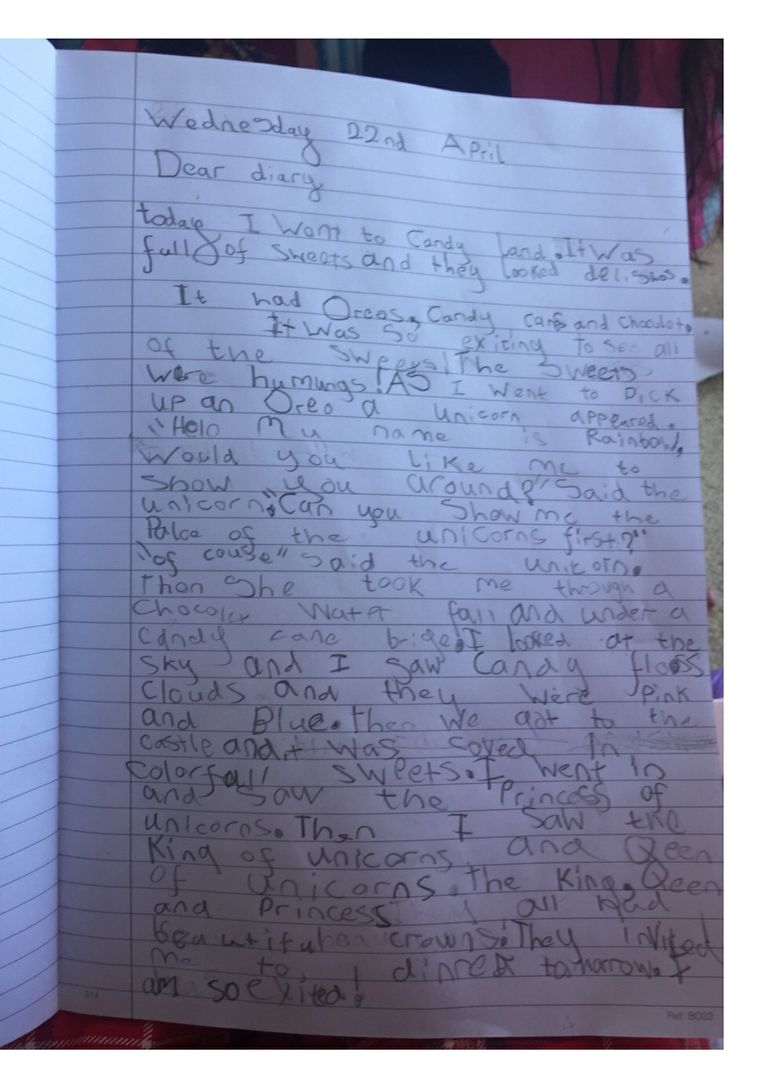 Wednesday 22nd April
Dear diary
today I Went to Candy land. It Was
full of sweets and they looked delishos.
It had Oreos, Candy cans and Chocolate.
It Was so exiting To see all
of the sweets! The Sweets
were humungs! AS I Went to Pick
up an Oreo a unicorn appeared.
"Helo My name is Rainbow,
Would you like me to
Show you around?" Said the
unicorn. "Can you Show me the
Palce of the unicorns first?"
"of couse" said the unicorn.
Then She took me through a
Chocolet Water fall and under a
Candy cane brige. I looked at the
sky and I saw Candy floss
Clouds and they were Pink
and Blue. Then We got to the
castle and it was coved In
colorfall sweets. I went in
and saw the Princess of
unicorns. Then I saw the
King of unicorns and Qeen
of unicorns. The King, Qeen
and Princess all had
beautiful crowns. They invited
me to dinner tomorrow. I
am so exited!
314
Ref: 9022